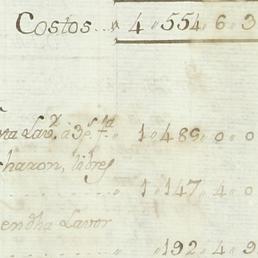 Costos... 4 554 6 3
ta Lav.r à 3 p.s 1 489 0 0
charon, libres
1 147 4 0
endha Lavor
192 4 9